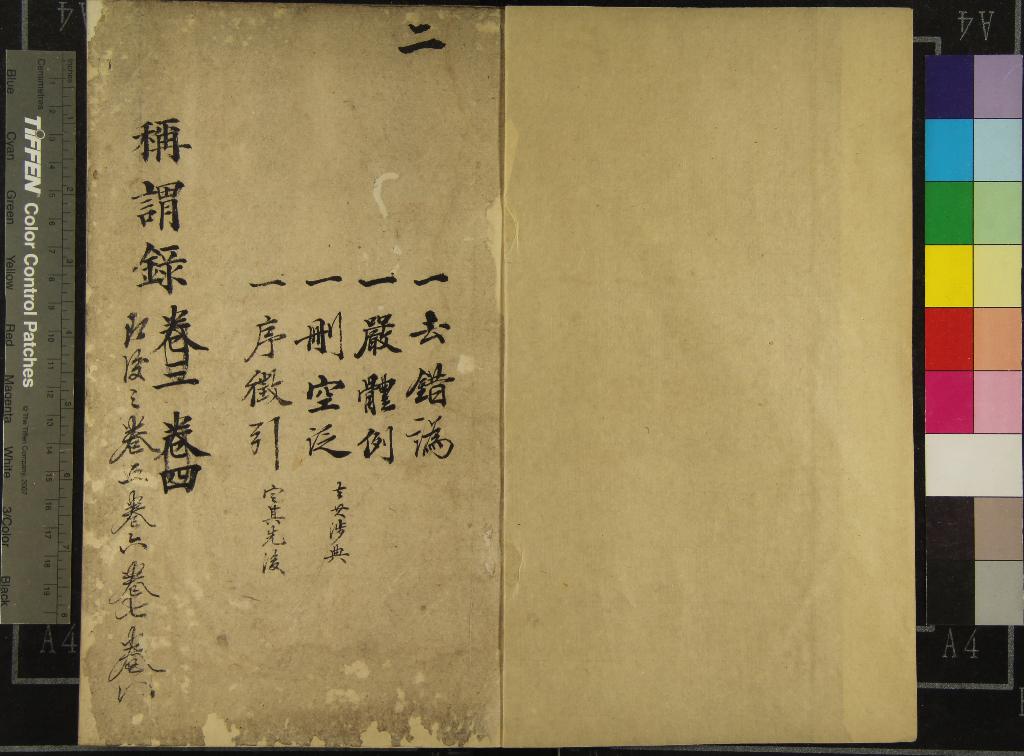 二
一去錯譌
一嚴體例
一刪空泛 去其涉典
一序徵引 定其先後
稱謂錄 卷三 卷四
改後之卷五卷六卷七卷八
TIFFEN Color Control Patches
© The Tiffen Company, 2007
Centimetres
Inches
Blue
Cyan
Green
Yellow
Red
Magenta
White
3/Color
Black
A4
A4
A4
A4